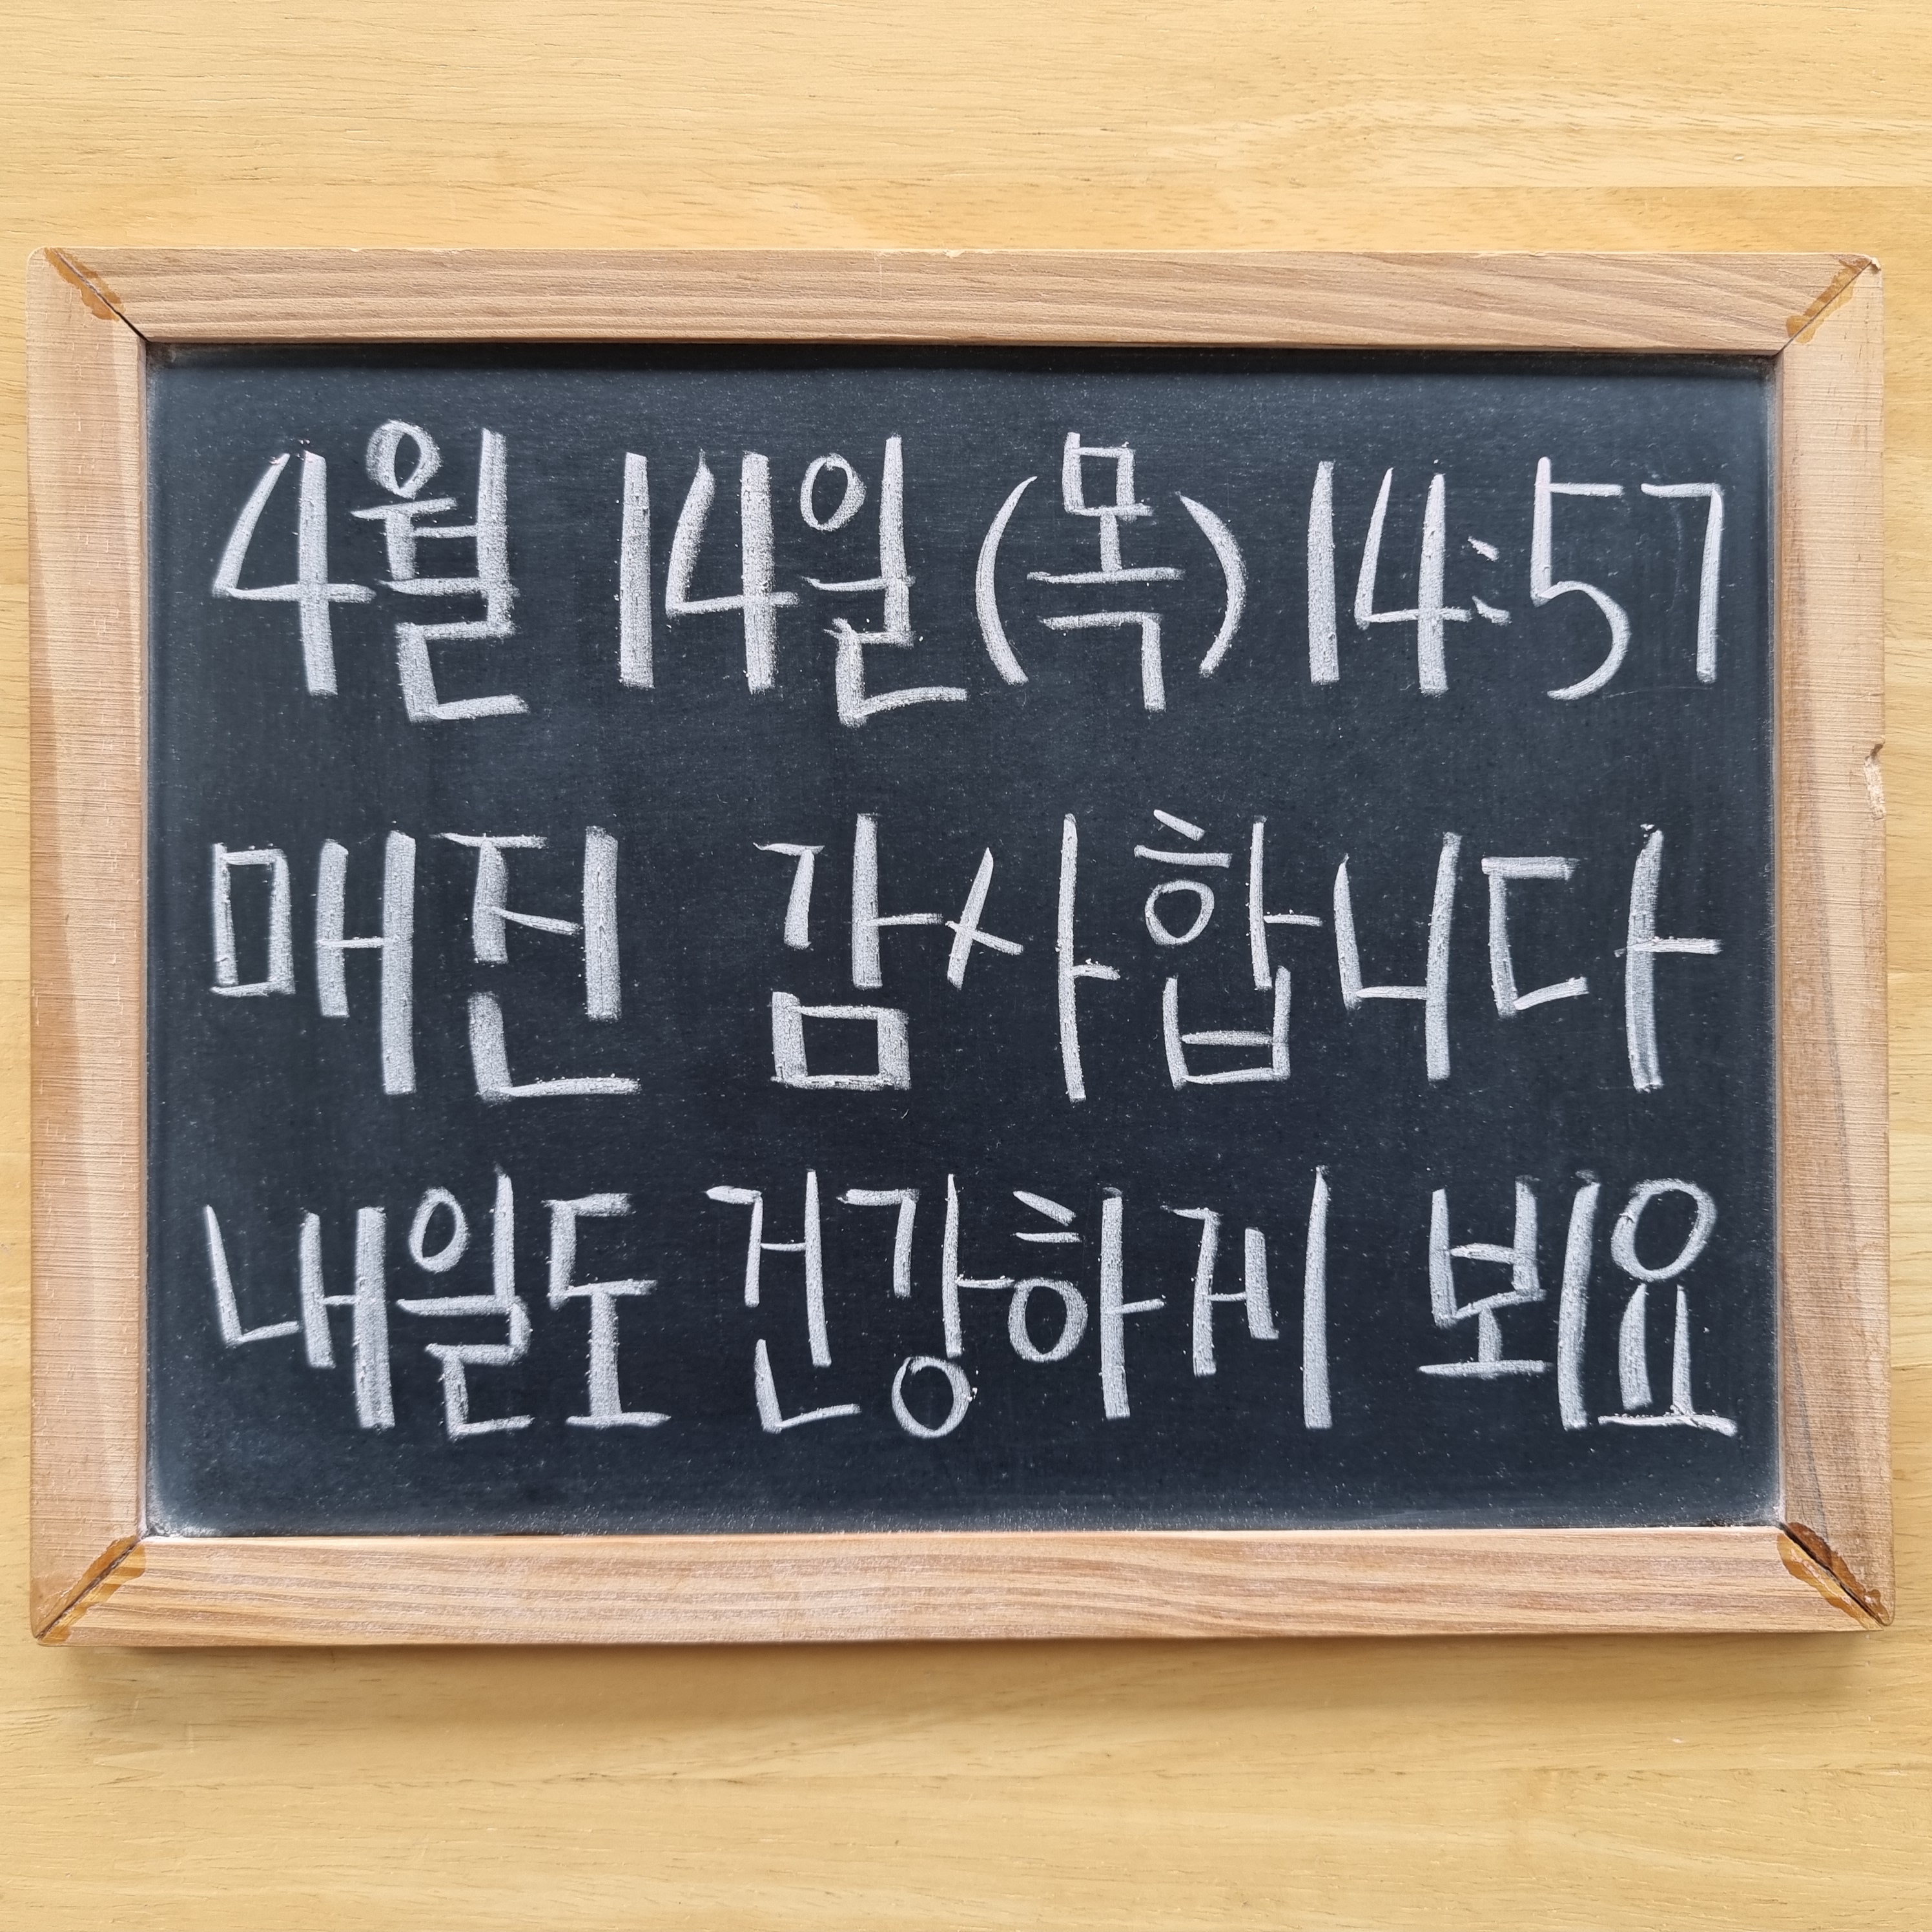 4월 14일(목) 14:57
매진 감사합니다
내일도 건강하게 뵈요